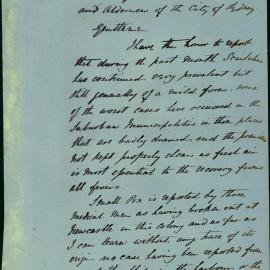 and Aldermen of the City of Sydney
Gentlemen
I have the honor to report
that during the past month Scarlatina
has continued very prevalent but
still generally of a mild form. some
of the worst cases have occurred in the
Suburban Municipalities in those places
that are badly drained, and the
not kept properly clean as fresh air
is most essential to the recovery from
all fevers.
Small Pox is reported by three
Medical Men as having broken out at
Newcastle in this colony and as far as
I can learn without any trace of its
origin no case having been reported from
the harbour or the